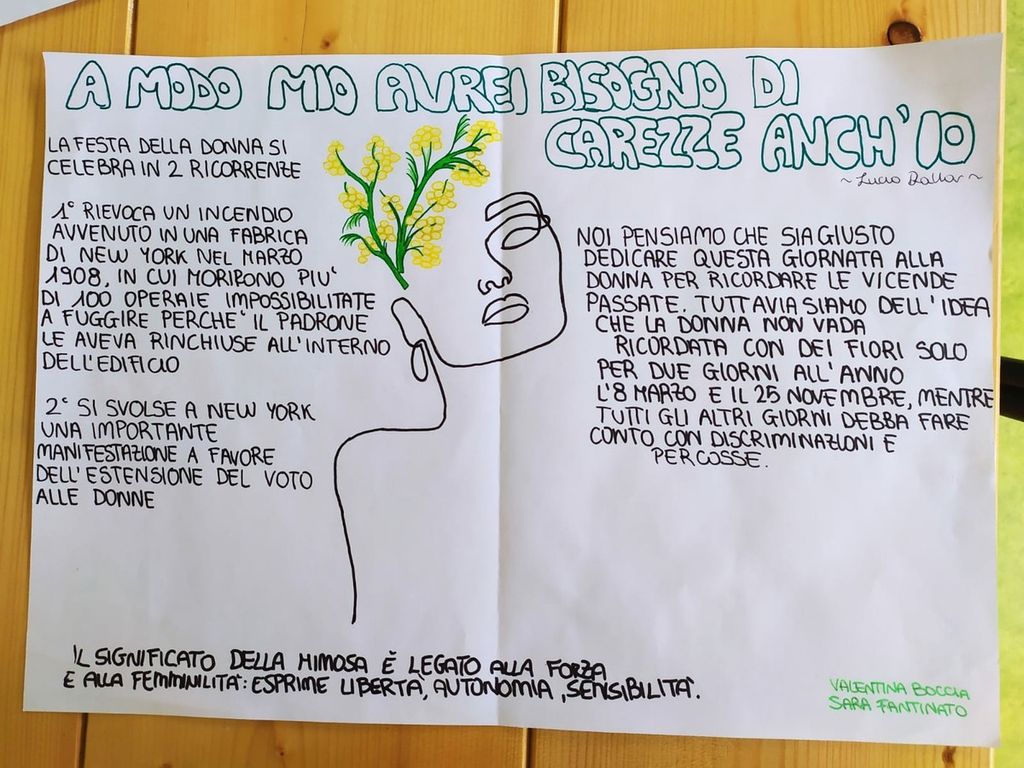 A MODO MIO AVREI BISOGNO DI
CAREZZE ANCH'IO
~Lucio Dalla~
LA FESTA DELLA DONNA SI
CELEBRA IN 2 RICORRENZE
1° RIEVOCA UN INCENDIO
AVVENUTO IN UNA FABRICA
DI NEW YORK NEL MARZO
1908, IN CUI MORIRONO PIU'
DI 100 OPERAIE IMPOSSIBILITATE
A FUGGIRE PERCHE' IL PADRONE
LE AVEVA RINCHIUSE ALL'INTERNO
DELL'EDIFICIO
2° SI SVOLSE A NEW YORK
UNA IMPORTANTE
MANIFESTAZIONE A FAVORE
DELL'ESTENSIONE DEL VOTO
ALLE DONNE
NOI PENSIAMO CHE SIA GIUSTO
DEDICARE QUESTA GIORNATA ALLA
DONNA PER RICORDARE LE VICENDE
PASSATE. TUTTAVIA SIAMO DELL'IDEA
CHE LA DONNA NON VADA
RICORDATA CON DEI FIORI SOLO
PER DUE GIORNI ALL'ANNO
L'8 MARZO E IL 25 NOVEMBRE, MENTRE
TUTTI GLI ALTRI GIORNI DEBBA FARE
CONTO CON DISCRIMINAZIONI E
PERCOSSE.
IL SIGNIFICATO DELLA MIMOSA È LEGATO ALLA FORZA
E ALLA FEMMINILITA': ESPRIME LIBERTA', AUTONOMIA, SENSIBILITA'.
VALENTINA BOCCIA
SARA FANTINATO